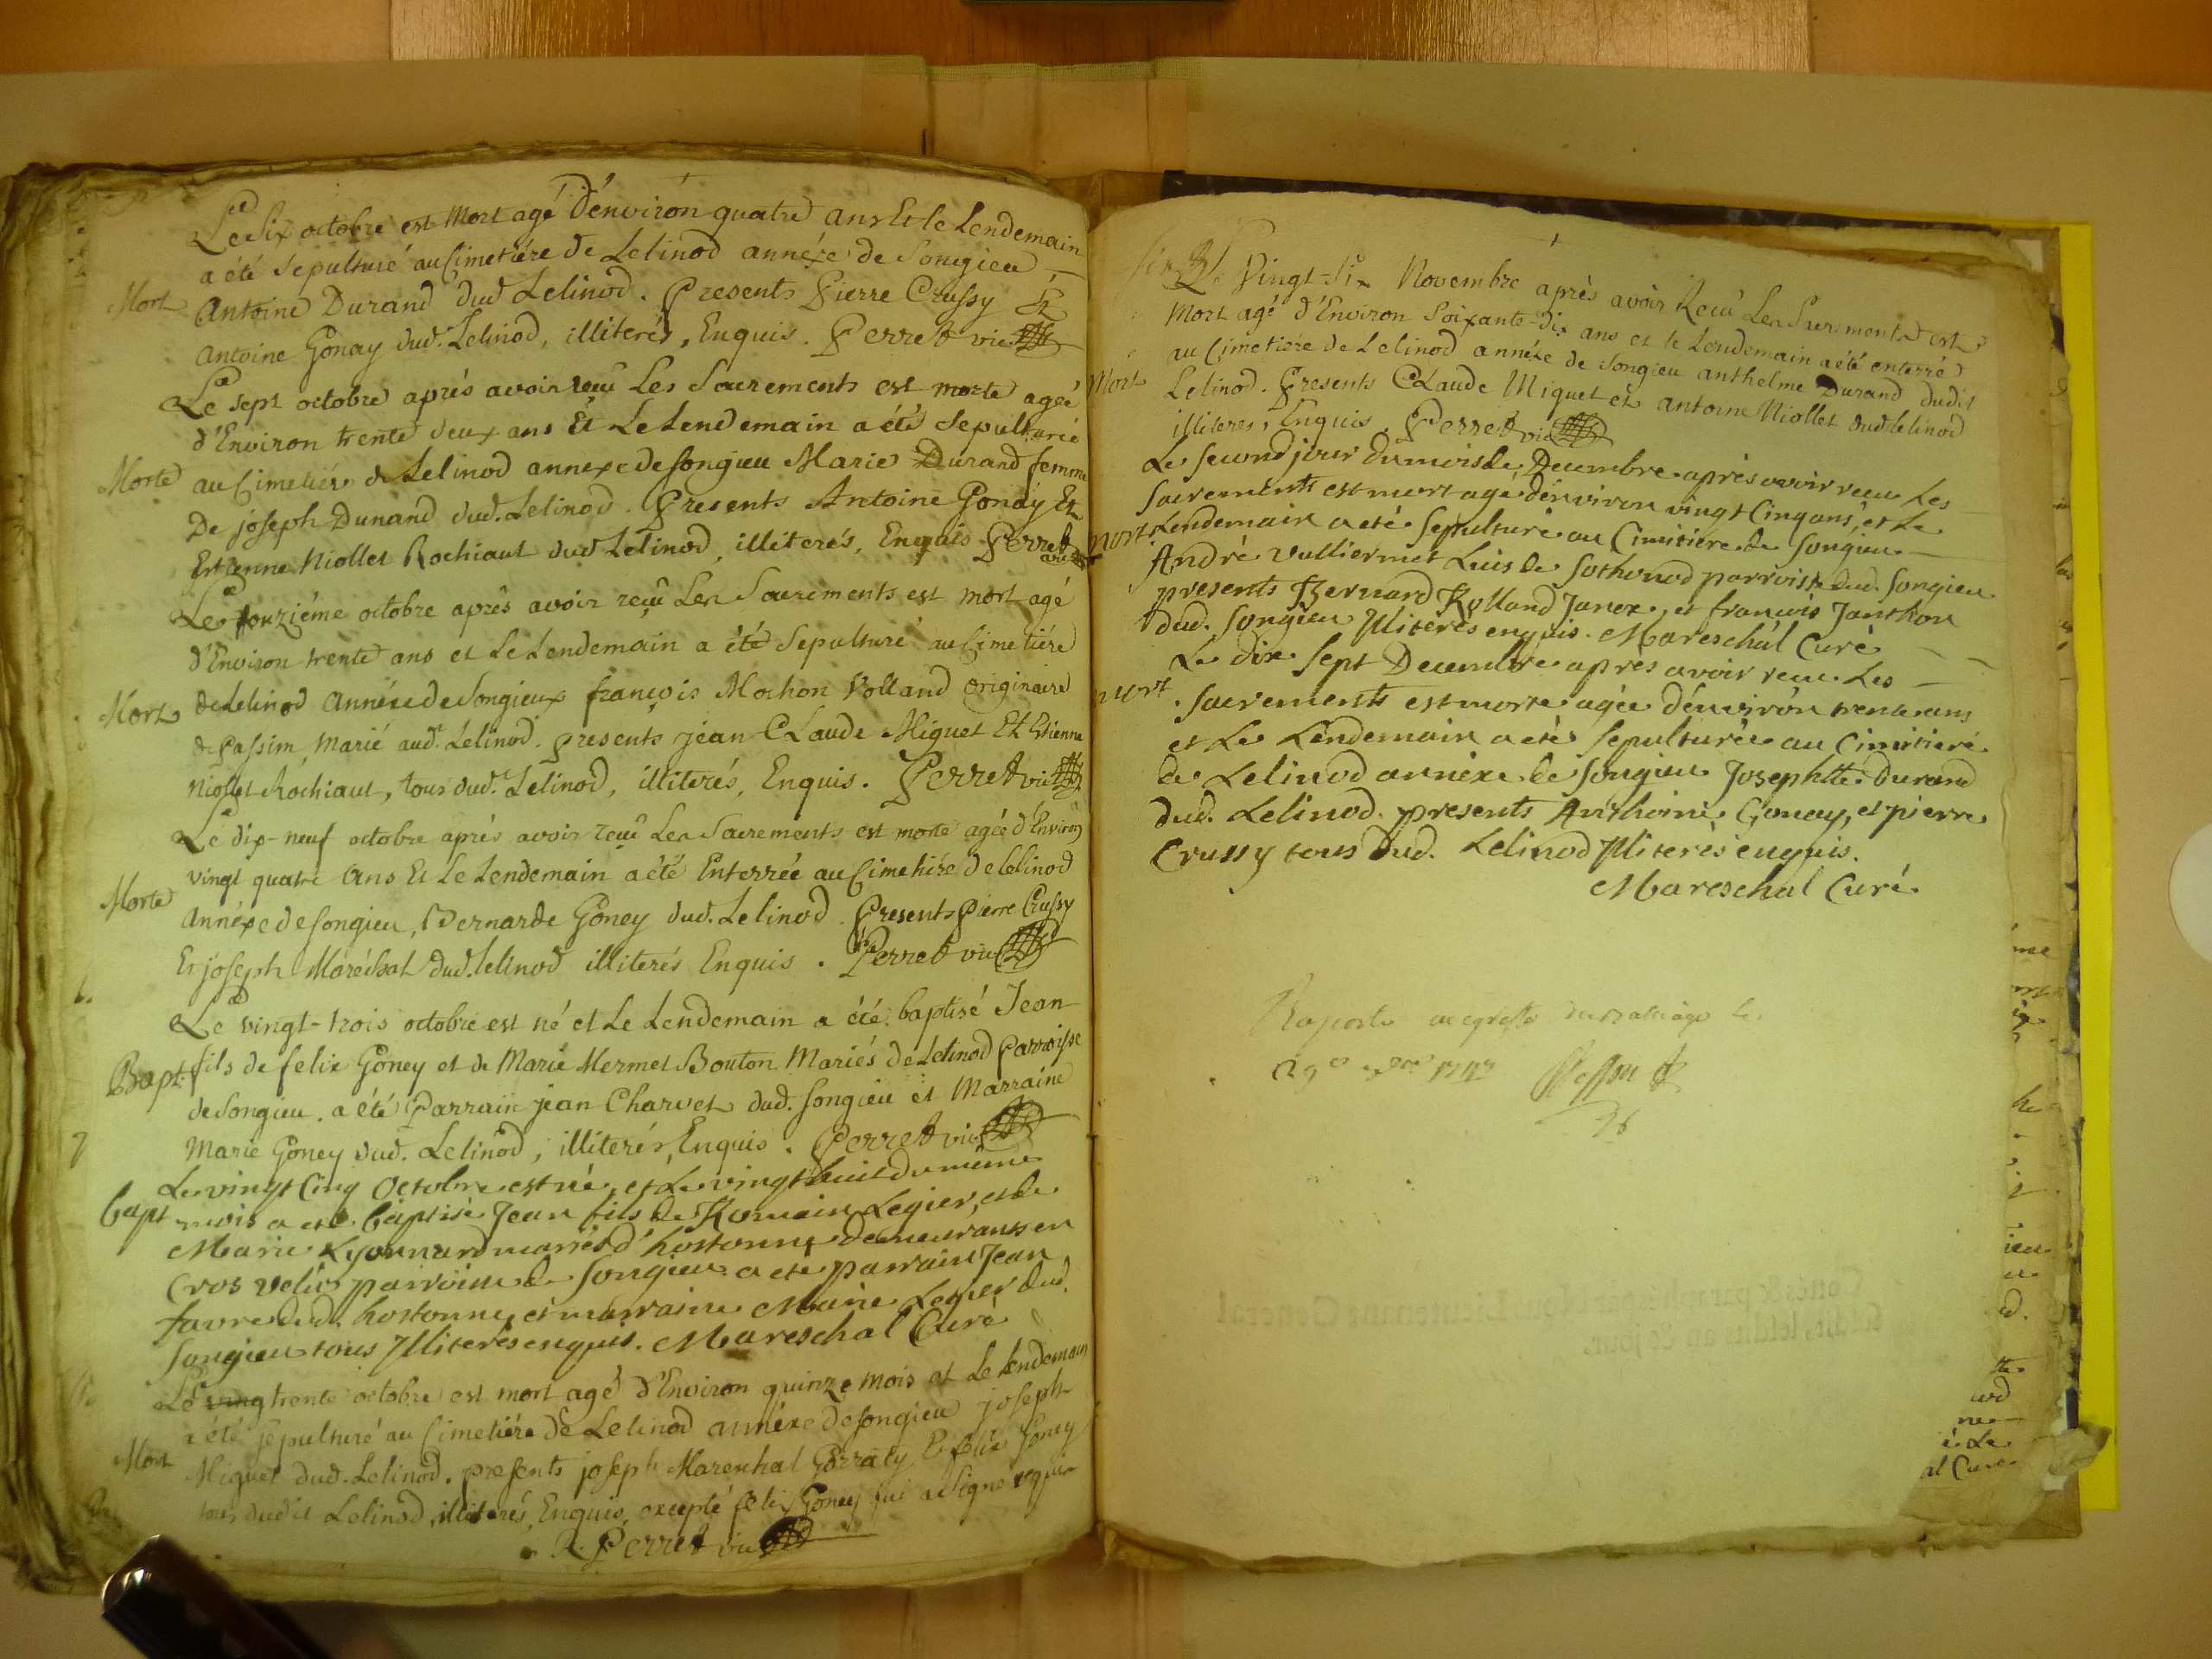 Le Six octobre est Mort agé d'énviron quatre ans Et le Lendemain
a été Sepulturé au Cimetiére de Lelinod annéxe de Songieu
Mort Antoine Durand dud. Lelinod. Presents Pierre Crussy Et
Antoine Gonay dud. Lelinod, illiterés, Enquis. Perret vic
Le Sept octobre aprés avoir reçû Les Sacrements est morte agée
d'Environ trente deux ans Et Le Lendemain a été Sepulturée
Morte au Cimetiére de Lelinod annexe de Songieu Marie Durand femme
De joseph Dunand dud. Lelinod. Presents Antoine Gonay Et
Estienne Niollet Rochiaut dud Lelinod, illiterés, Enquis Perret
Le onziéme octobre aprés avoir reçû Les Sacrements est mort agé
d'Environ trente ans et Le Lendemain a été Sepulturé au Cimetiére
Mort de Lelinod Annéxe de Songieux françois Mochon Volland originaire
de Passim, Marié aud. Lélinod. presents jean CLaude Miguet Et Etienne
Niollet Rochiaut, tous dud. Lelinod, illiterés, Enquis. Perret vic
Le dix-neuf octobre aprés avoir reçû Les Sacrements est morte agée d'Environ
vingt quatre Ans Et Le Lendemain a été Enterrée au Cimetiére de Lelinod
Morte Annéxe de Songieu, Bernarde Goney dud. Lelinod. Presents Pierre Crussy
Et joseph Maréchal dud. lelinod illiterés Enquis. Perret vic
Le vingt-trois octobre est né et Le Lendemain a été baptisé Jean
Bapt. fils de felix Goney et de Marie Mermet Bouton Mariés de Lelinod Parroisse
de Songieu. a été Parrain jean Charvet dud. Songieu et Marraine
Marie Goney dud. Lelinod, illiterés, Enquis. Perret vic
Le vingt Cinq Octobre est né, et Le vingt huit du même
bapt mois a eté baptisé Jean fils de Romain Legier, et de
Marie Lyonnard mariés d'hostonne demeurants en
Cros velir parroisse de Songieu. a eté parrain Jean
favre dud. hostonne, et marraine Marie Legier dud.
Songieu tous Illiterés enquis. Mareschal Curé
Le ving trente octobre est mort agé d'Environ quinze mois et Le Lendemain
a été Sepulturé au Cimetiére de Lelinod annéxe de Songieu joseph
Mort Miguet dud. Lelinod. presents joseph Mareschal Gorraty Et felix Goney
tous dudit Lelinod, illiterés, Enquis, excepté felix Goney qui a Signé requis
R. Perret vic
Le Vingt-Six Novembre aprés avoir Reçû Les Sacrements est
Mort agé d'Environ Soixante-dix ans et le Lendemain a été enterré
au Cimetiére de Lelinod annéxe de Songieu anthelme Durand dudit
Mort Lelinod. Presents CLaude Miguet et antoine Niollet dud lelinod
illiteres, Enquis. Perret vic
Le second jour du mois de Decembre aprés avoir receu Les
Sacrements est mort agé d'énviron vingt Cinq ans, et Le
mort Lendemain a eté Sepulturé au Cimitiére de Songieu
André Vulliermet Luis de Sothonod parroisse dud. Songieu
presents Bernard Rolland Janex, et françois Janthon
dud. Songieu Illiterés enquis. Mareschal Curé
Le dix Sept Decembre aprés avoir receu Les
mort Sacrements est morte agée d'énvirón trente ans
et Le Lendemain a eté Sepulturée au Cimitieré
de Lelinod annéxe de Songieu Josephtte Durand
dud. Lelinod. presents Anthoine Gonay, et pierre
Crussy tous dud. Lelinod Illiterés enquis.
Mareschal Curé
Raporté au greffe du Balliage le